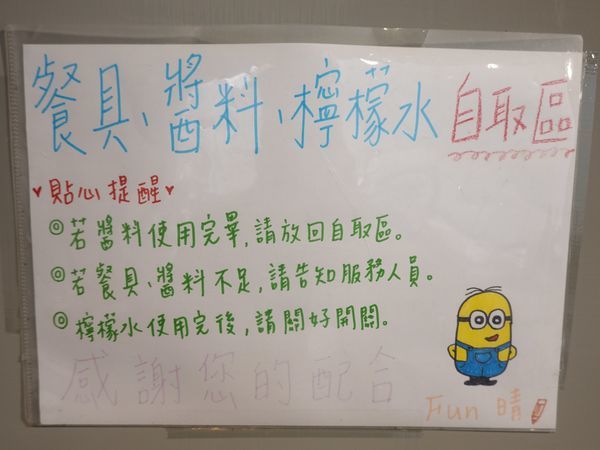 餐具、醬料、檸檬水自取區
♥貼心提醒♥
◎若醬料使用完畢,請放回自取區。
◎若餐具、醬料不足,請告知服務人員。
◎檸檬水使用完後,請關好開關。
感謝您的配合
Fun 晴